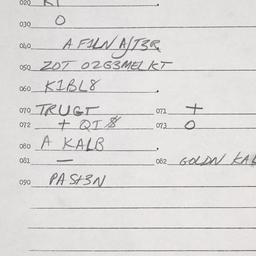 020 KI .
030 O
040 A F1LN AJT3R
050 ZOT OZG3MEL KT
060 K1BL8 .
070 TRUGT 071 +
072 + QI $ 073 O
080 A KALB
081 — 082 GOLDN KAL
090 PAST3N